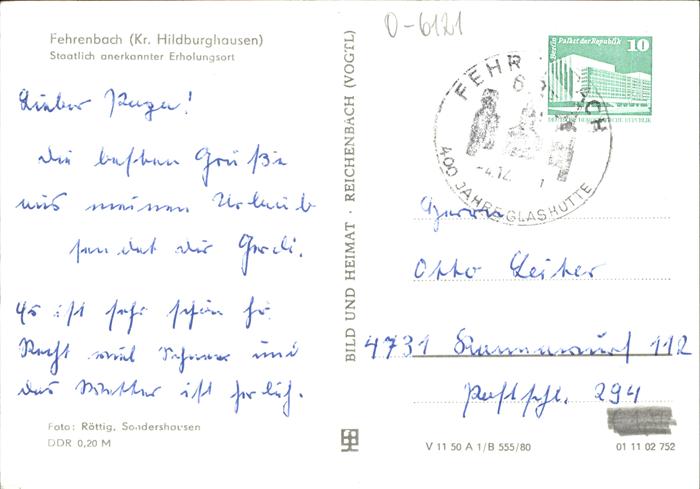 Fehrenbach (Kr. Hildburghausen)
Staatlich anerkannter Erholungsort
Lieber
die besten Grüße
aus meinem Urlaub
sendet dir Gerdi.
Es ist sehr schön hi
Recht viel Schnee und
das Wetter ist herlich.
Foto: Röttig, Sondershausen
DDR 0,20 M
BILD UND HEIMAT · REICHENBACH (VOGTL)
0-6121
FEHRENBACH
-4.12
400 JAHRE GLASHÜTTE
Berlin Palast der Republik 10
DEUTSCHE DEMOKRATISCHE REPUBLIK
Herrn
Otto Leiter
4731 Kannawurf 112
Postfch. 294
V 11 50 A 1/B 555/80
01 11 02 752